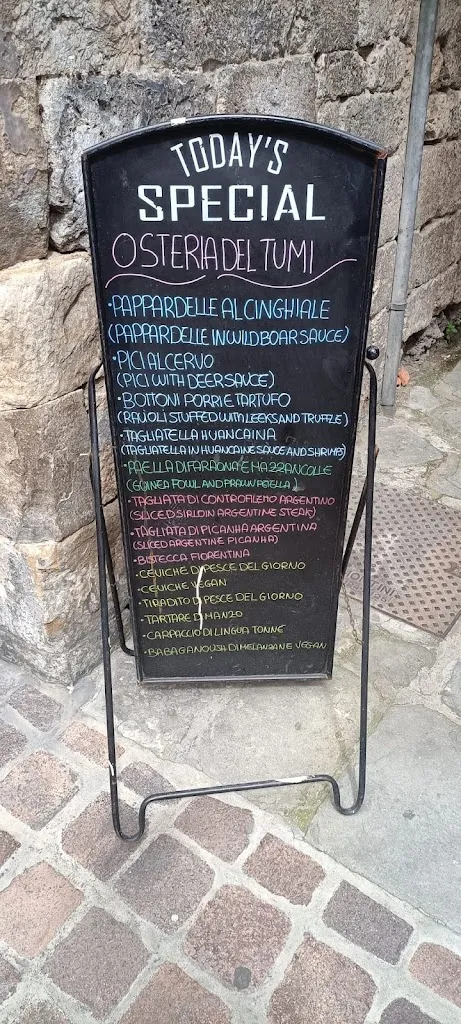 TODAY'S
SPECIAL
OSTERIA DEL TUMI
·PAPPARDELLE AL CINGHIALE
(PAPPARDELLE IN WILD BOAR SAUCE)
·PICI AL CERVO
(PICI WITH DEER SAUCE)
·BOTTONI PORRI E TARTUFO
(RAVIOLI STUFFED WITH LEEKS AND TRUFFLE)
·TAGLIATELLA HUANCAINA
(TAGLIATELLA IN HUANCAINE SAUCE AND SHRIMPS)
·PAELLA DI FARAONA E MAZZANCOLLE
(GUINEA FOWL AND PRAWN POELLA)
·TAGLIATA DI CONTROFILEMO ARGENTINO
(SLICED SIRLOIN ARGENTINE STEAK)
·TAGLIATA DI PICANHA ARGENTINA
(SLICED ARGENTINE PICANHA)
·BISTECCA FIORENTINA
·CEVICHE DI PESCE DEL GIORNO
·CEVICHE VEGAN
·TIRADITO DI PESCE DEL GIORNO
·TARTARE DI MANZO
·CARPACCIO DI LINGUA TONNÉ
·BABAGANOUSH DI MELANZANE VEGAN